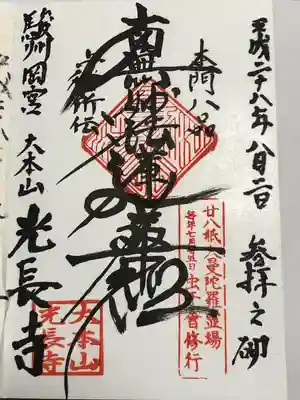 平成二十八年八月二日 参拝之砌
本門八品
南無妙法蓮華経
駿州岡宮
大本山 光長寺
廿八紙大曼陀羅霊場
毎年七月廿五日虫干会修行
大本山
光長寺